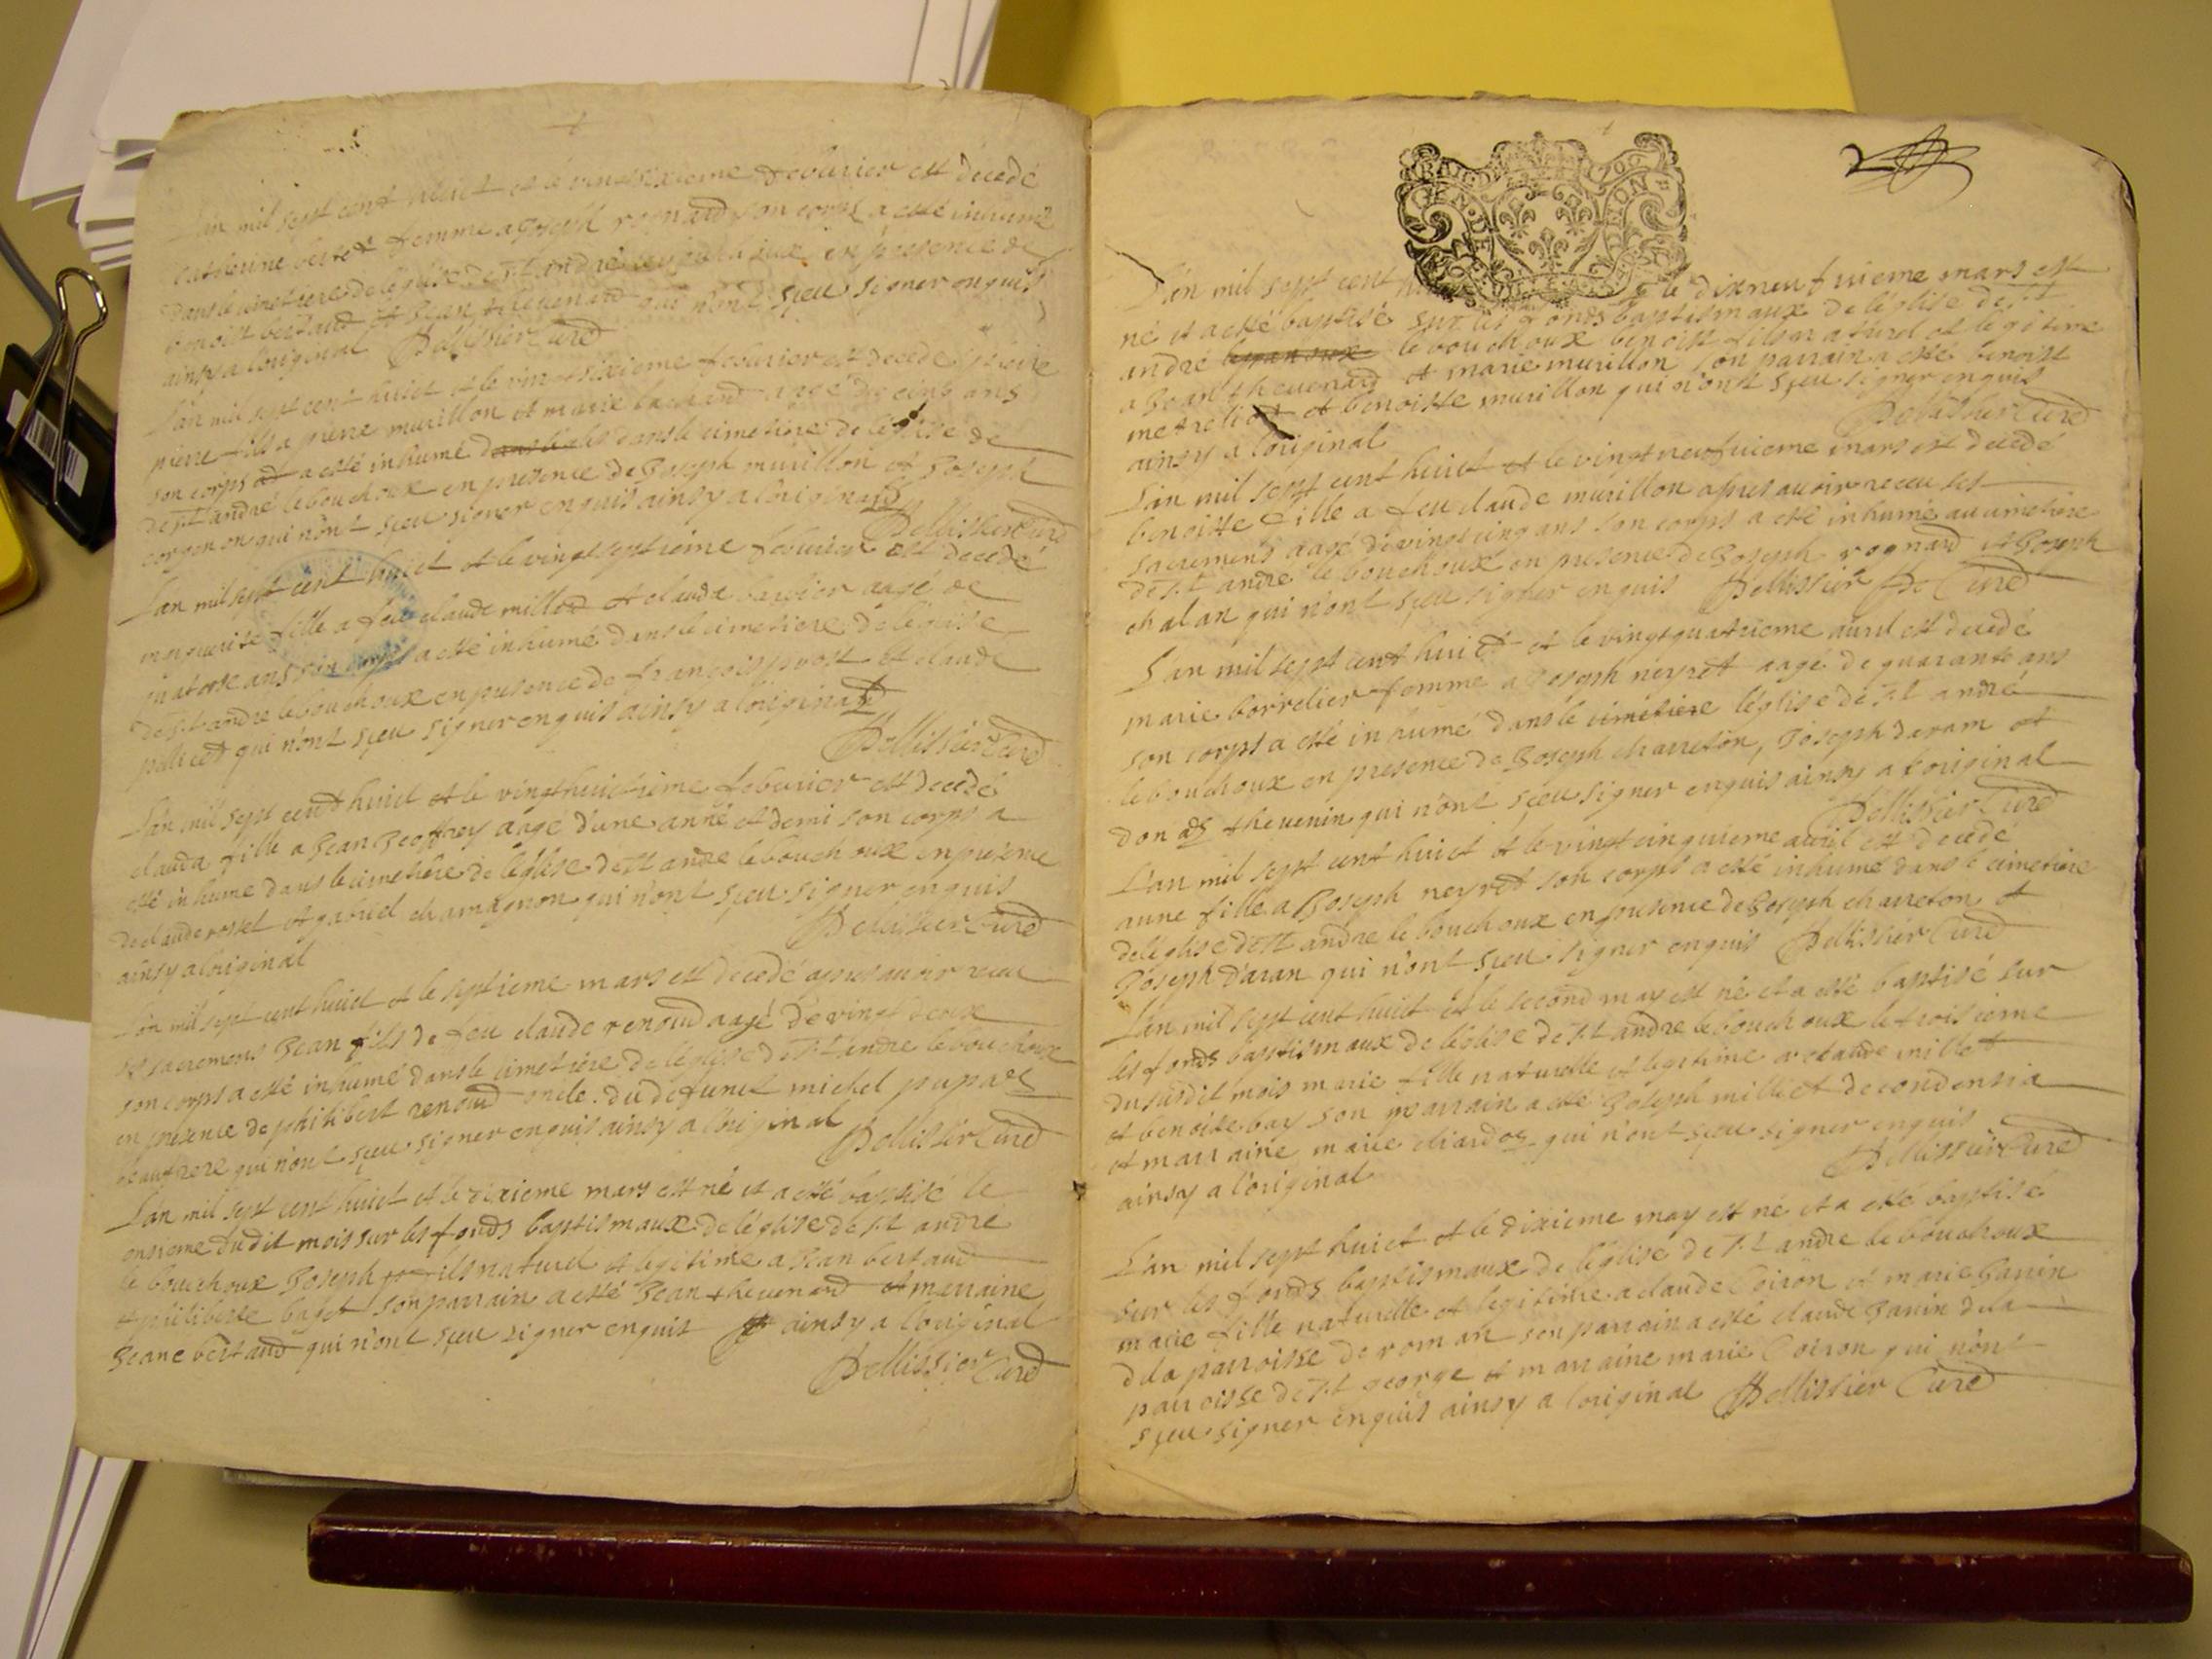 Lan mil sept cent huict et le vintsixieme febvrier est decedé
catherine femme a Joseph rognard son corps a esté inhumé
dans le cimetiere de leglise de St andré en presence de
benoist bertaud et Jean thevenard qui n'ont sçeu signer enquis
ainsy a loriginal Pellissier Curé
Lan mil sept cent huict et le vintsixieme febvrier est decedé pierre
pierre fils a pierre murillon et marie aagé de cinq ans
son corps a esté inhumé dans le cimetiere de leglise de
de St andré le bouchoux en presence de Joseph murillon et Joseph
qui n'ont sçeu signer enquis ainsy a loriginal
Pellissier Curé
Lan mil sept cent huict et le vingtseptieme febvrier est decedé
fille a feu claude et claude barbier aagé de
quatorse ans son corps a esté inhumé dans le cimetiere de leglise
de St andre le bouchoux en presence de françois prost et claude
qui n'ont sçeu signer enquis ainsy a loriginal
Pellissier Curé
Lan mil sept cent huict et le vingthuictieme febvrier est decedé
clauda fille a Jean Jeoffrey aagé d'une anné et demi son corps a
esté inhumé dans le cimetiere de leglise de St andre le bouchoux en presence
de claude rosset et gabriel chamagnon qui n'ont sçeu signer enquis
ainsy a loriginal Pellissier Curé
Lan mil sept cent huict et le septieme mars est decedé apres avoir receu
ses sacremens Jean fils de feu claude renoud aagé de vingt deux
son corps a esté inhumé dans le cimetiere de leglise de St andre le bouchoux
en presence de philibert renoud oncle du defunct michel
beaufrere qui n'ont sçeu signer enquis ainsy a loriginal
Pellissier Curé
Lan mil sept cent huict et le dixieme mars est né et a esté baptisé le
onsieme dudit mois sur les fonds baptismaux de léglise de St andré
le bouchoux Joseph fils naturel et legitime a Jean bertaud
et philiberte son parrain a esté Jean thevenard et marraine
Jeane bertaud qui n'ont sçeu signer enquis ainsy a loriginal
Pellissier Curé
2
GEN·DE DIJON
Lan mil sept cent le dixneufvieme mars est
né et a esté baptisé sur les fonds baptismaux de leglise de St
andré le bouchoux benoist fils naturel et legitime
a Jean thevenard et marie murillon son parrain a esté benoist
et benoiste murillon qui n'ont sçeu signer enquis
ainsy a loriginal Pellissier Curé
Lan mil sept cent huict et le vingtneufvieme mars est decedé
benoitte fille a feu claude murillon apres avoir receu ses
sacremens aagé de vingt cinq ans son corps a esté inhumé au cimetiere
de St andre le bouchoux en presence de Joseph rognard et Joseph
chalan qui n'ont sçeu signer enquis Pellissier Curé
Lan mil sept cent huict et le vingtquatrieme avril est decedé
marie borrelier femme a Joseph neyret aagé de quarante ans
son corps a esté inhumé dans le cimetiere léglise de St andré
le bouchoux en presence de Joseph charreton, Joseph daram et
thevenin qui n'ont sçeu signer enquis ainsy a loriginal
Pellissier Curé
Lan mil sept cent huict et le vingtcinquieme avril est decedé
anne fille a Joseph neyret son corps a esté inhumé dans le cimetiere
de leglise de St andre le bouchoux en presence de Joseph charreton et
Joseph daran qui n'ont sçeu signer enquis Pellissier Curé
Lan mil sept cent huict et le second may est né et a esté baptisé sur
les fonds baptismaux de léglise de St andre le bouchoux le troisieme
du susdit mois marie fille naturelle et legitime a claude millet
et benoite bay son parrain a esté Joseph milliet de condensia
et marraine marie qui n'ont sçeu signer enquis
ainsy a l'original Pellissier Curé
Lan mil sept huict et le dixieme may est né et a esté baptisé
sur les fonds baptismaux de leglise de St andre le bouchoux
marie fille naturelle et legitime a claude Coiron et marie Janin
de la parroisse de roman son parrain a esté claude Janin de la
parroisse de St george et marraine marie Coiron qui n'ont
sçeu signer enquis ainsy a loriginal Pellissier Curé